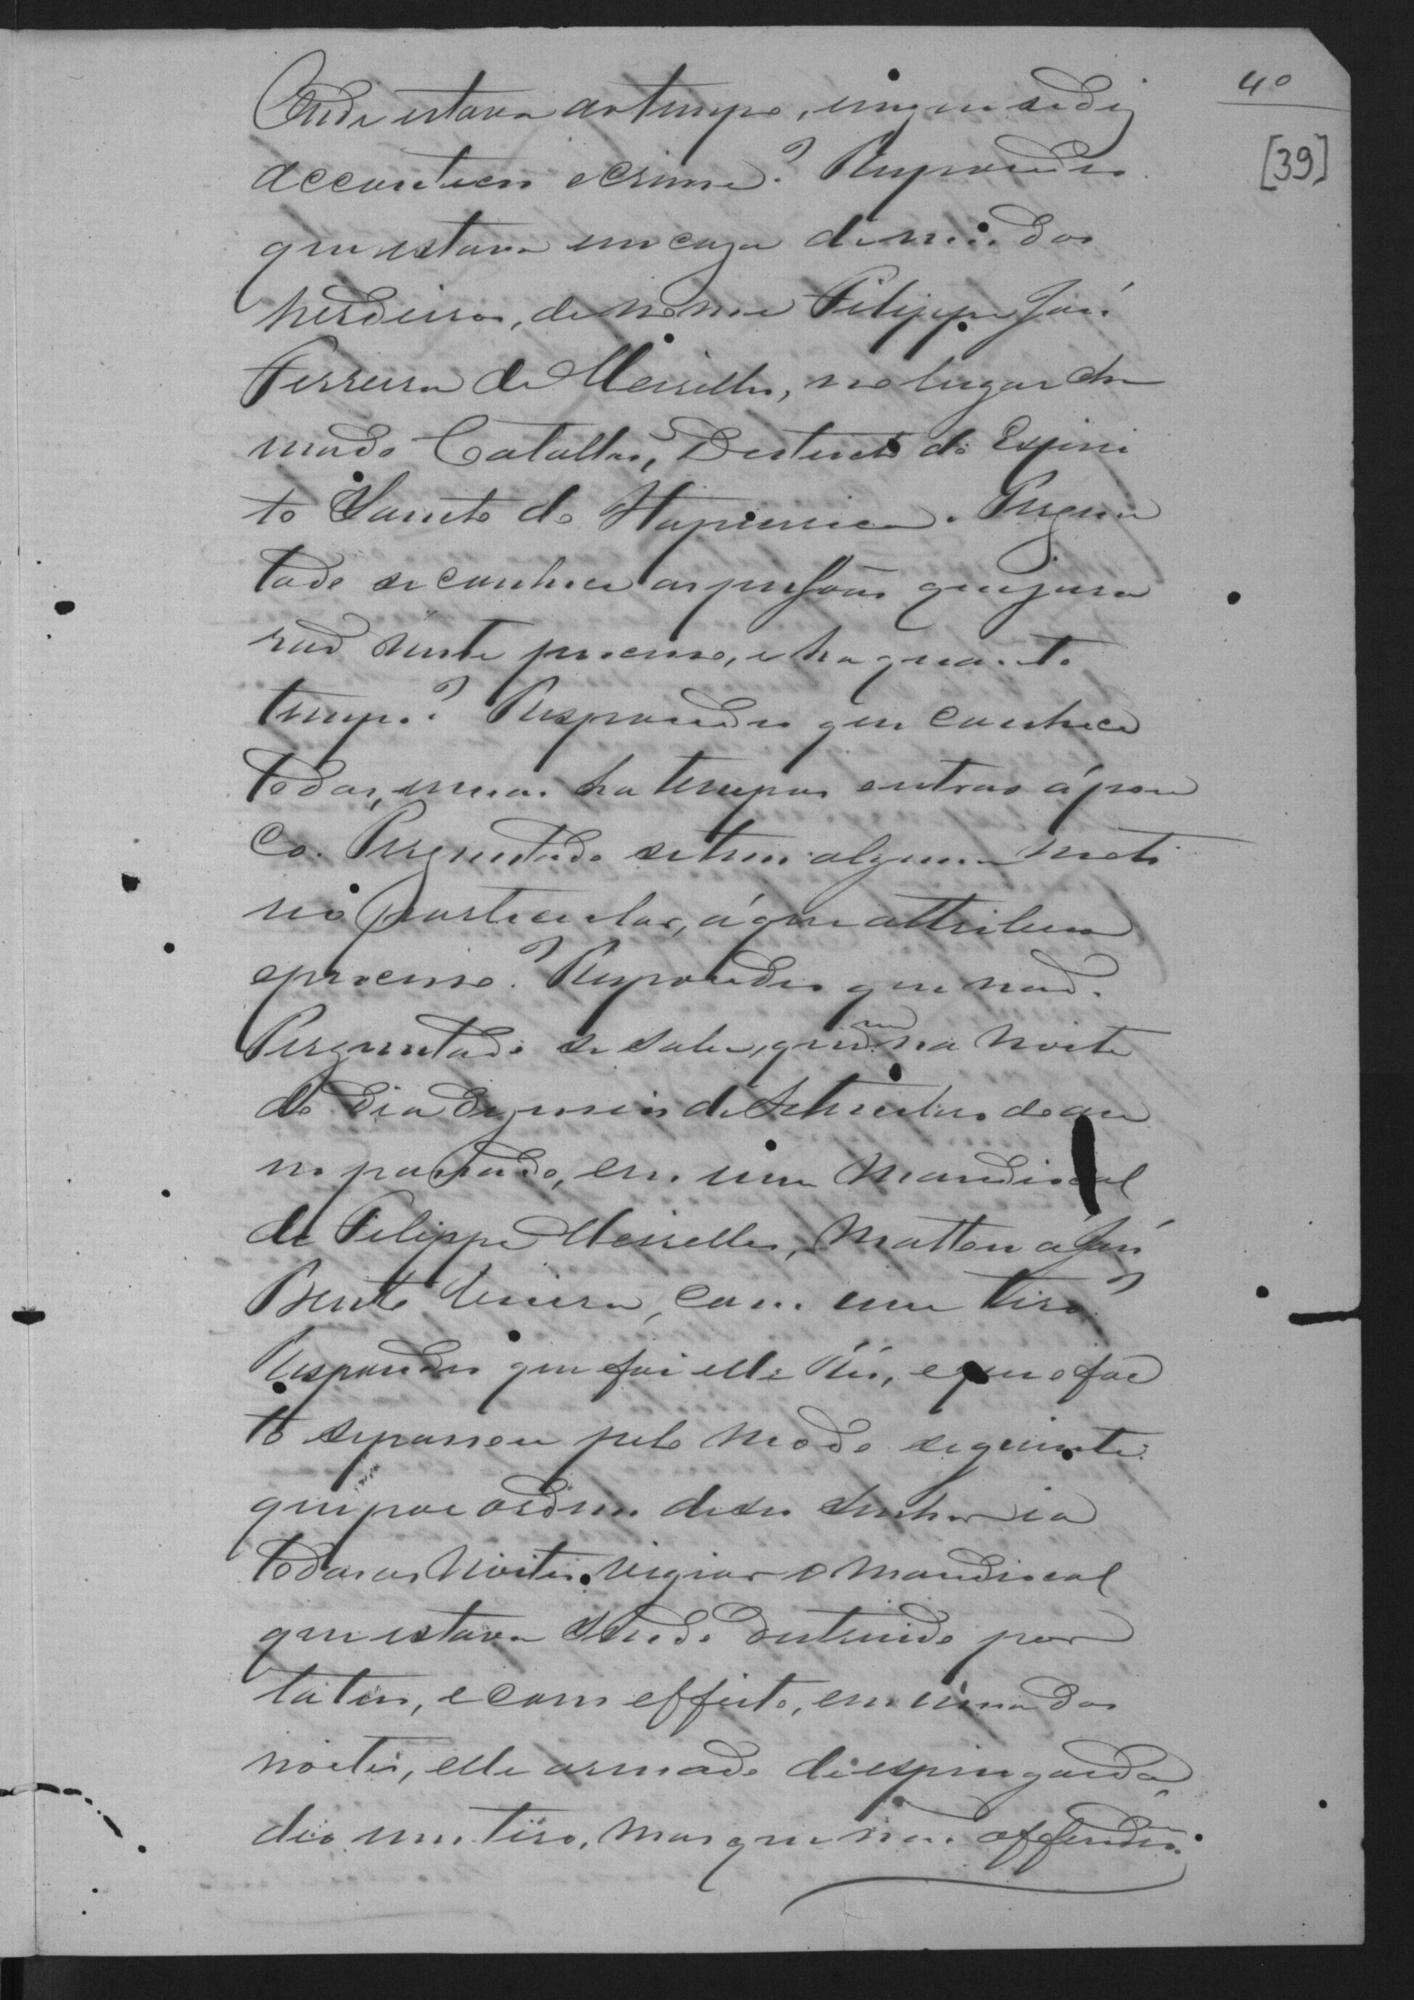 40
[39]
Onde estava ao tempo, em que se diz
acconteceu o crime? Respondeo
que estava em caza de um dos
herdeiros, de nome Felippe José
Ferreira de Meirelles, no lugar cha
mado Catallão, Destricto do Espiri
to Santo do Itapecirica. Pergun
tado se conhece as pessôas que jura
rão neste processo, e ha quanto
tempo? Respondeo que conhece
todas, umas ha tempos outras á pou
co. Perguntado se tem algum moti
vo particular, á que attribua
o processo? Respondeo que não.
Perguntado se sabe, quem na noite
do dia de seis de Setembro do an
no passado, em um Mandiocal
de Felippe Meirelles, mattou a José
Bento Vieira, com um tiro?
Respondeo que foi elle Réo, e que o fac
to se passou pelo modo seguinte:
que por ordem de seu Senhor ia
todas as noites vigiar o mandiocal
que estava sendo destruido por
tatus, e com effeito, em uma das
noites, elle armado de espingarda
deo um tiro, mas que não offendeo